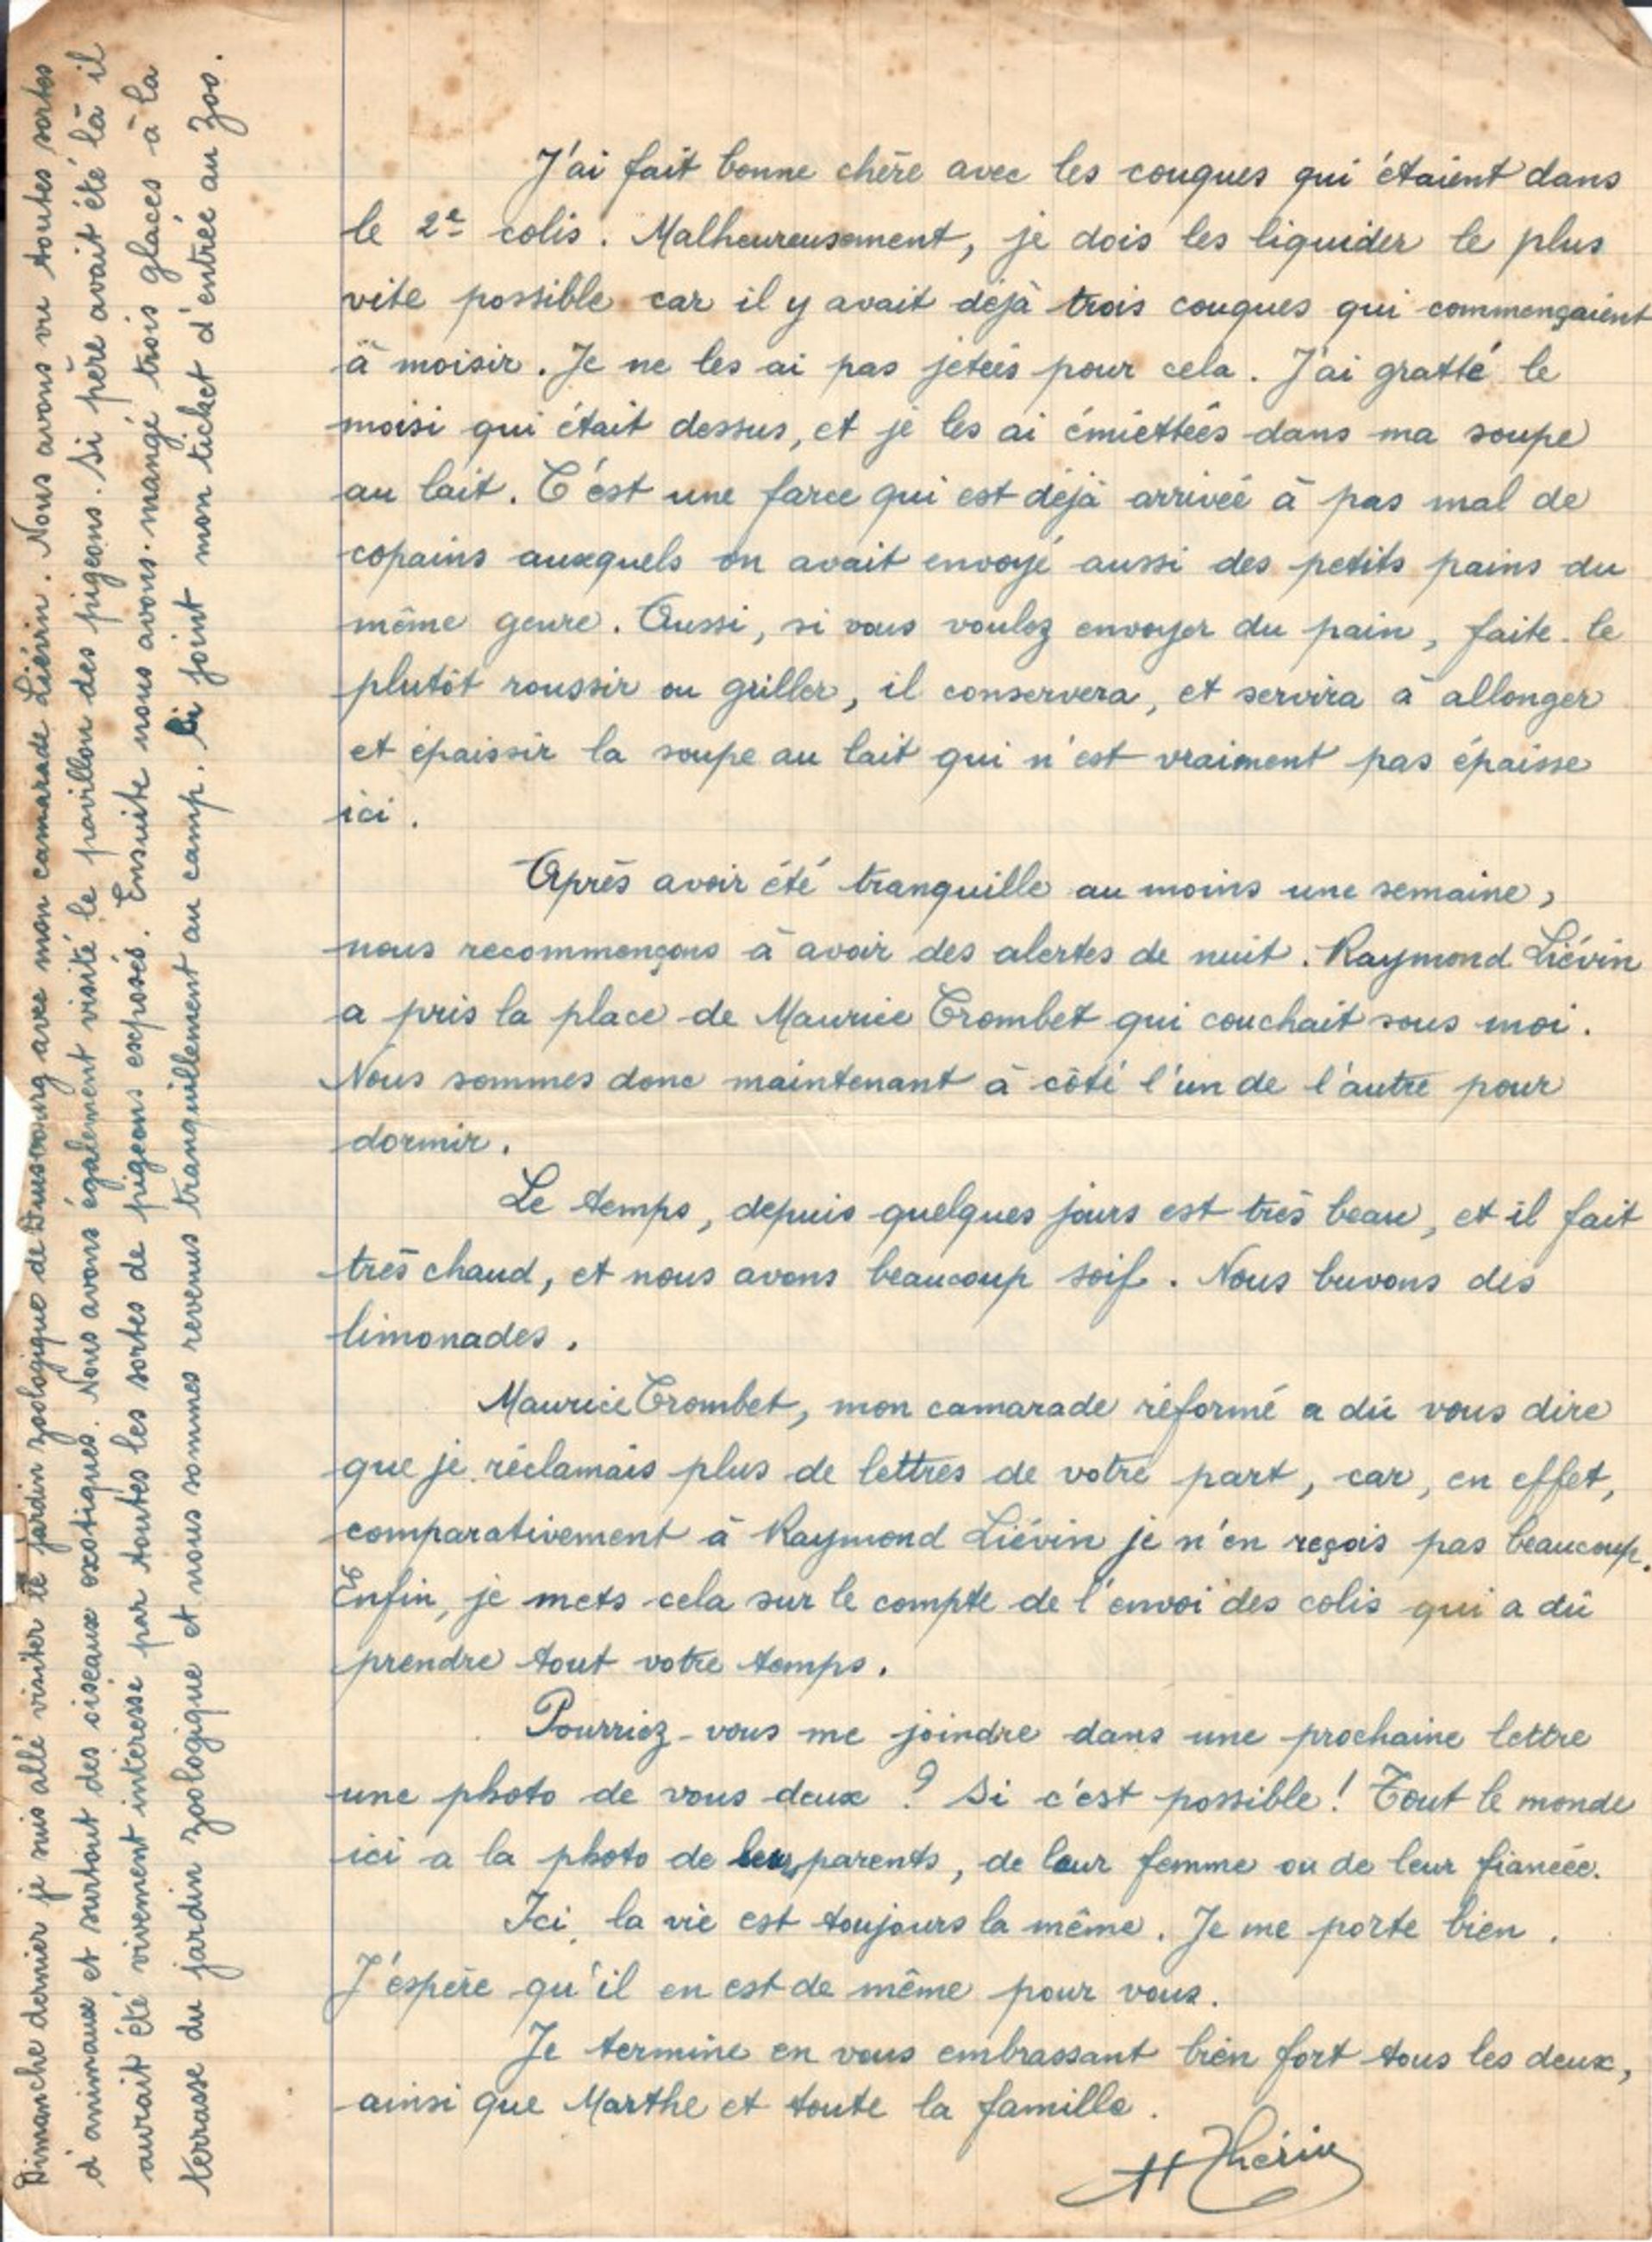 J'ai fait bonne chère avec les couques qui étaient dans
le 2e colis. Malheureusement, je dois les liquider le plus
vite possible car il y avait déjà trois couques qui commençaient
à moisir. Je ne les ai pas jetées pour cela. J'ai gratté le
moisi qui était dessus, et je les ai émiettées dans ma soupe
au lait. C'est une farce qui est déjà arrivée à pas mal de
copains auxquels on avait envoyé aussi des petits pains du
même genre. Aussi, si vous voulez envoyer du pain, faite-le
plutôt roussir ou griller, il conservera, et servira à allonger
et épaissir la soupe au lait qui n'est vraiment pas épaisse
ici.
Après avoir été tranquille au moins une semaine,
nous recommençons à avoir des alertes de nuit. Raymond Liévin
a pris la place de Maurice Crombet qui couchait sous moi.
Nous sommes donc maintenant à côté l'un de l'autre pour
dormir.
Le temps, depuis quelques jours est très beau, et il fait
très chaud, et nous avons beaucoup soif. Nous buvons des
limonades.
Maurice Crombet, mon camarade réformé a dû vous dire
que je réclamais plus de lettres de votre part, car, en effet,
comparativement à Raymond Liévin je n'en reçois pas beaucoup.
Enfin, je mets cela sur le compte de l'envoi des colis qui a dû
prendre tout votre temps.
Pourriez-vous me joindre dans une prochaine lettre
une photo de vous deux ? Si c'est possible ! Tout le monde
ici a la photo de leurs parents, de leur femme ou de leur fiancée.
Ici, la vie est toujours la même. Je me porte bien.
J'espère qu'il en est de même pour vous.
Je termine en vous embrassant bien fort tous les deux,
ainsi que Marthe et toute la famille.
H Thérin
Dimanche dernier je suis allé visiter le jardin zoologique de avec mon camarade Liévin. Nous avons vu toutes sortes
d'animaux et surtout des oiseaux exotiques. Nous avons également visité le pavillon des pigeons. Si père avait été là il
aurait été vivement intéressé par toutes les sortes de pigeons exposés. Ensuite nous avons mangé trois glaces à la
terrasse du jardin zoologique et nous sommes revenus tranquillement au camp. Ci joint mon ticket d'entrée au zoo.